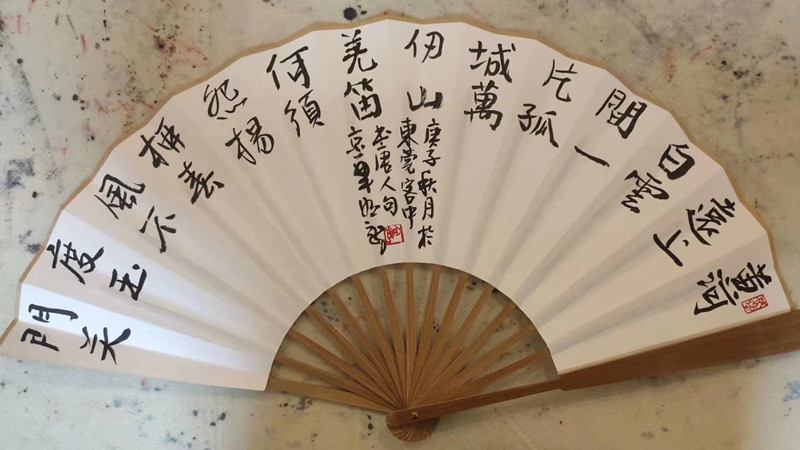 黄河
遠上
白雲
間一
片孤
城萬
仞山
羌笛
何須
怨楊
柳春
風不
度玉
門关
庚子秋月於
東莞客中
書唐人句